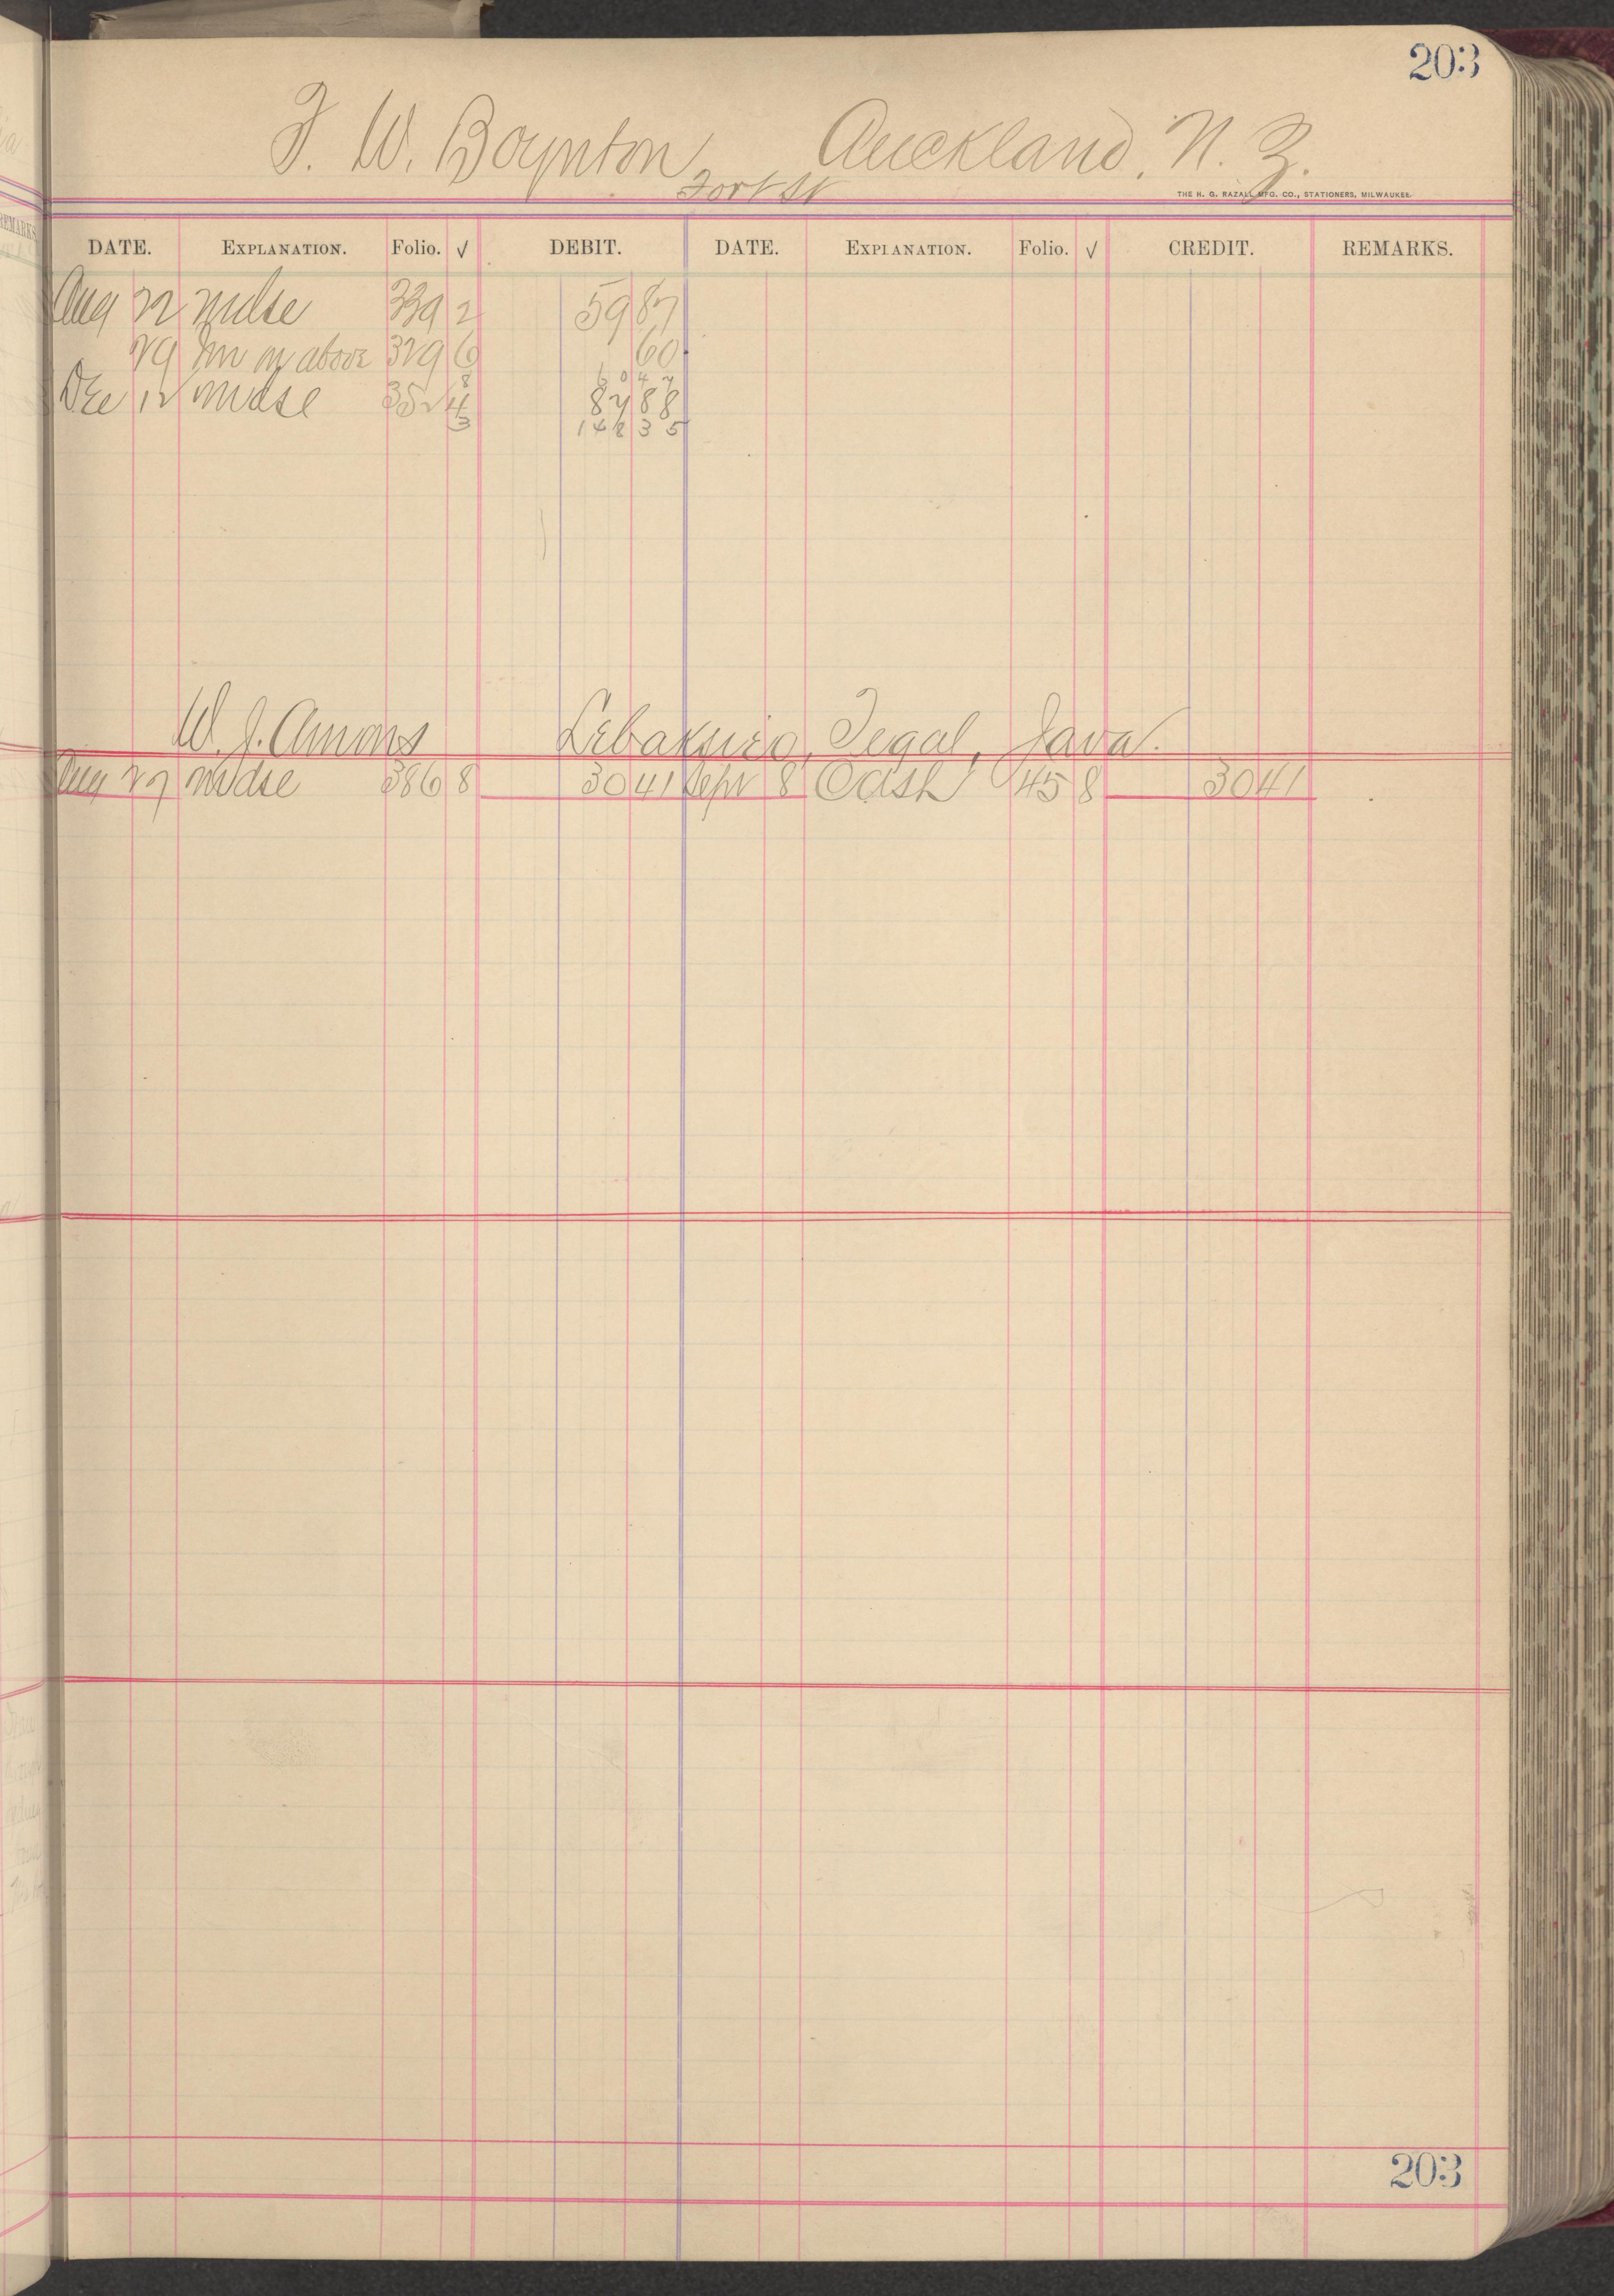 203
F. W. Boynton Auckland, N. Z.
Fort St
THE H. G. RAZALL MFG. CO., STATIONERS, MILWAUKEE.
DATE. EXPLANATION. Folio. √ DEBIT. DATE. EXPLANATION. Folio. √ CREDIT. REMARKS.
Aug 22 mdse 339 2 59 87
29 on above 329 6 60
8 60 47
Dec 12 mdse 352 4 87 88
3 148 35
W. J. Amons Lebaksieo, Tegal, Java.
Aug 27 mdse 386 8 30 41 Sept 8 Cash 45 8 30 41
203